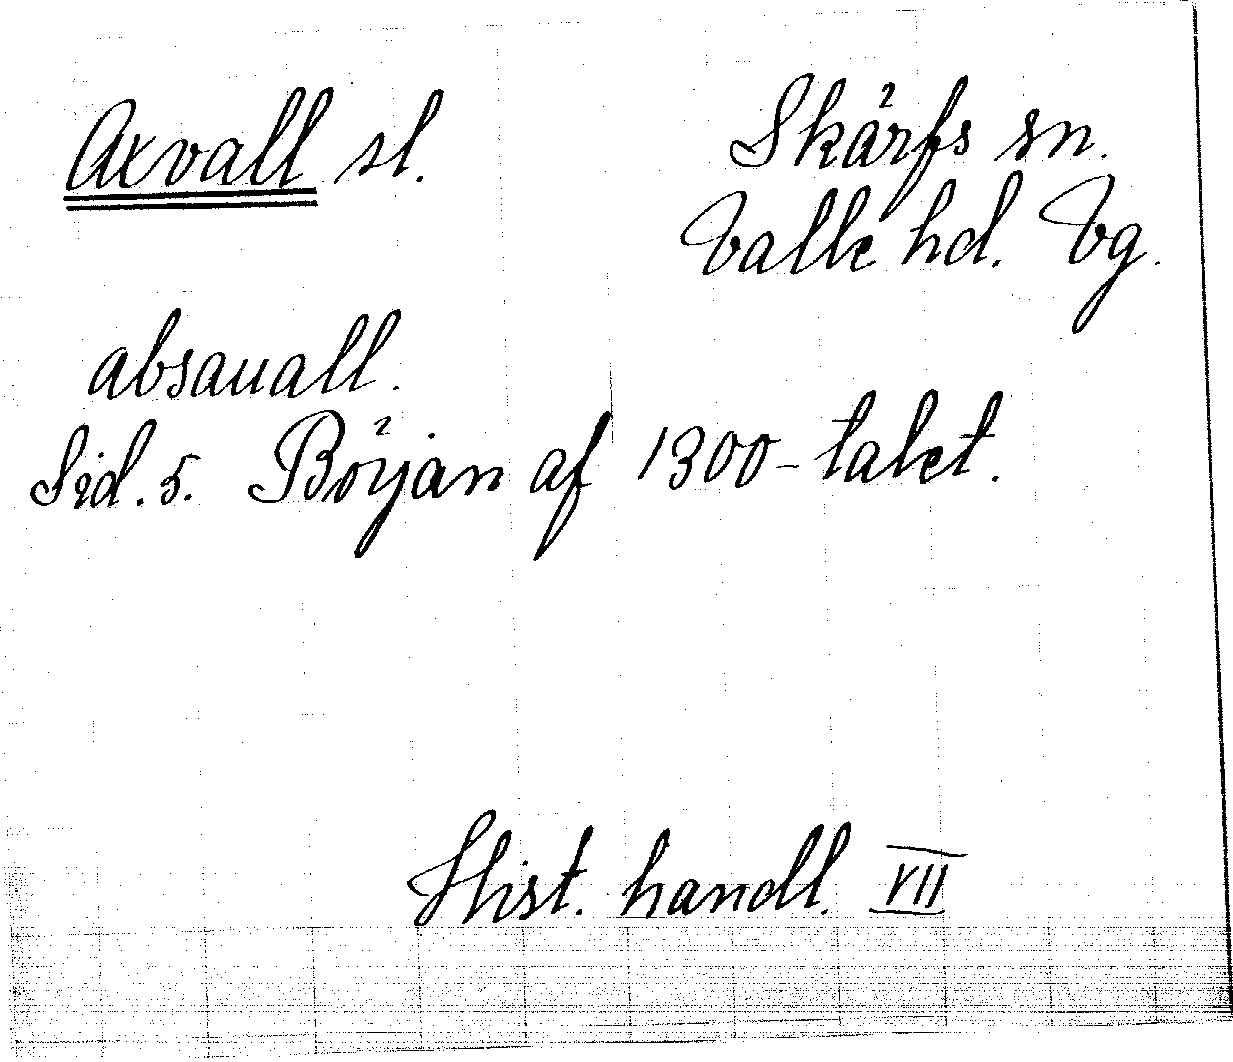 Axvall sl.
Skärfs sn.
Valle hd. Vg.
absauall.
Sid. 5. Början af 1300-talet.
Hist. handl. VII